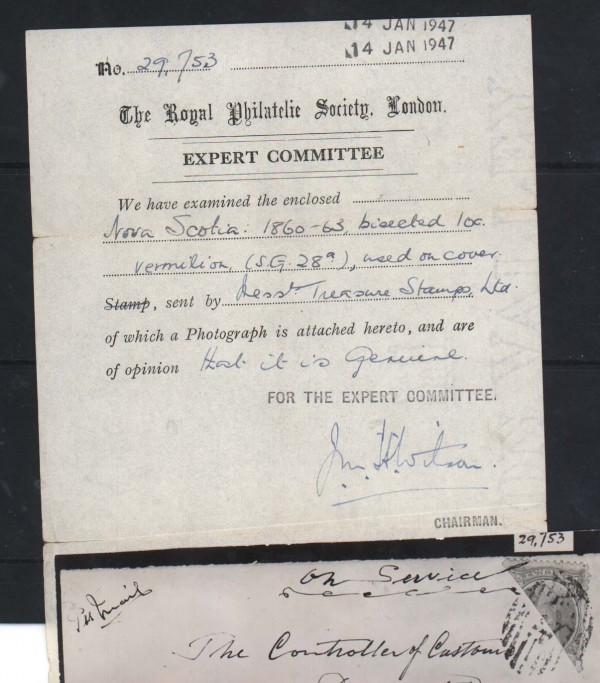 14 JAN 1947
14 JAN 1947
No. 29,753
The Royal Philatelic Society, London.
EXPERT COMMITTEE
We have examined the enclosed
Nova Scotia: 1860-63, bisected 10c.
vermilion, (S.G. 28a), used on cover
Stamp, sent by Messrs Treasure Stamps, Ltd.
of which a Photograph is attached hereto, and are
of opinion that it is Genuine.
FOR THE EXPERT COMMITTEE.
CHAIRMAN.
29,753
On Service
Per Mail
The Controller of Customs